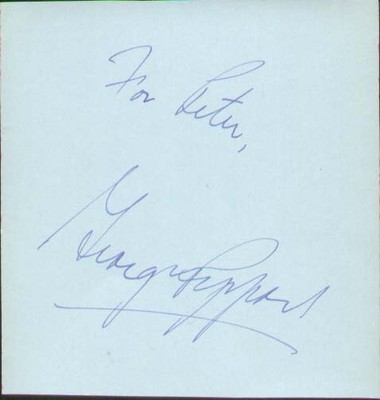 For Peter,
George Peppard